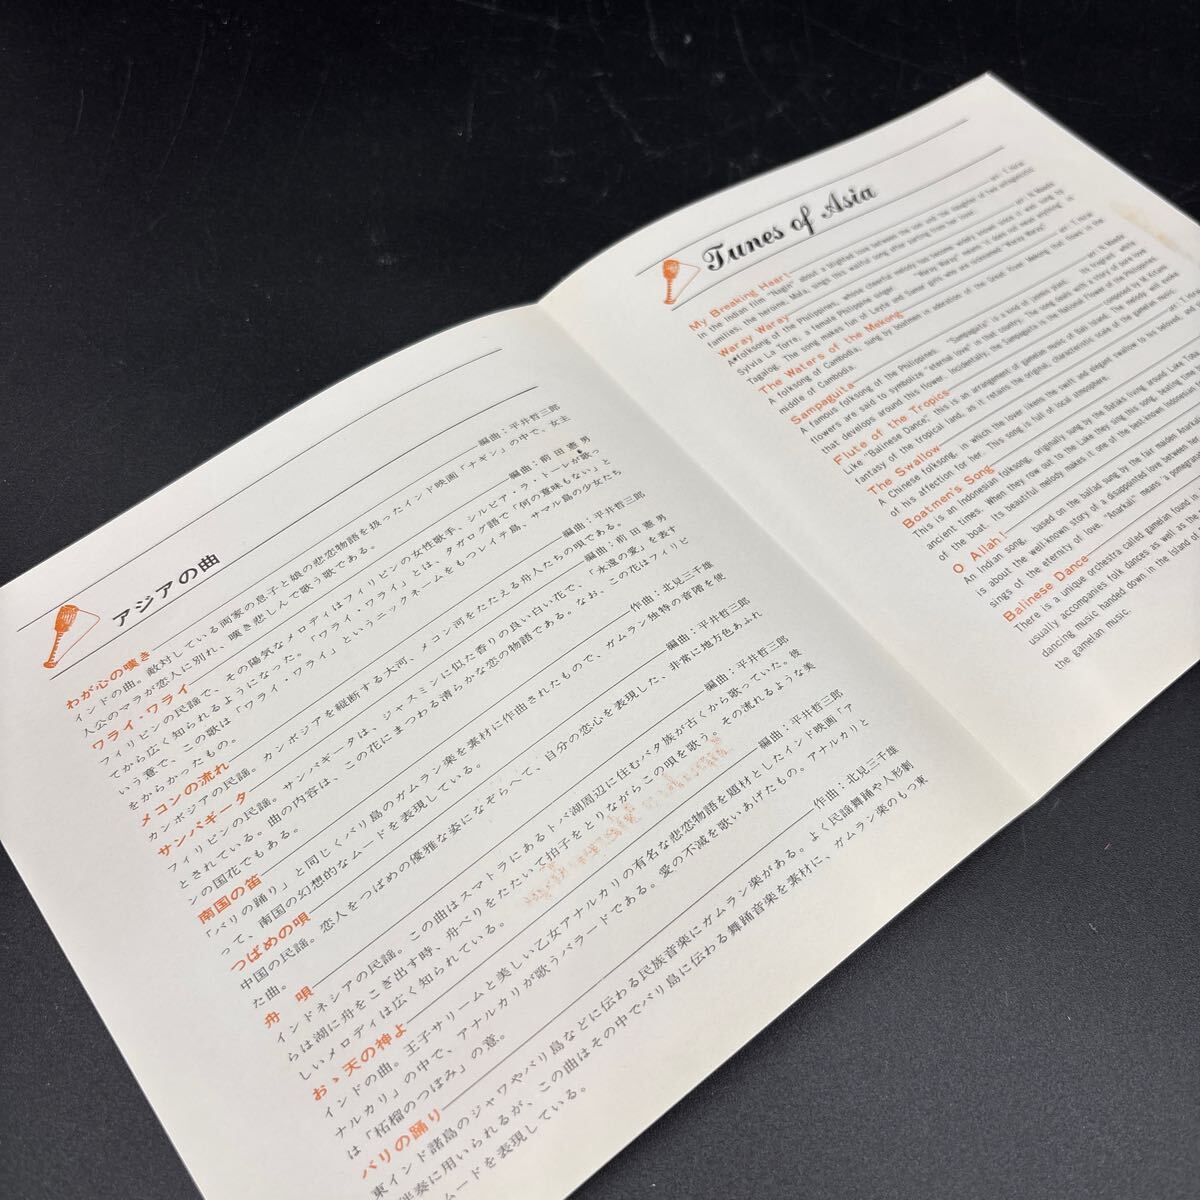 アジアの曲
わが心の嘆き 編曲：平井哲三郎
インドの曲。敵対している両家の息子と娘の悲恋物語を扱ったインド映画「ナギン」の中で、女主
人公のマラが恋人に別れ、嘆き悲しんで歌う歌である。
ワライ・ワライ 編曲：前田憲男
フィリピンの民謡で、その陽気なメロディはフィリピンの女性歌手、シルビア・ラ・トーレが歌っ
てから広く知られるようになった。「ワライ・ワライ」とは、タガログ語で「何の意味もない」と
いう意で、この歌は「ワライ・ワライ」というニックネームをもつレイテ島、サマル島の少女たち
をからかったもの。
メコンの流れ 編曲：平井哲三郎
カンボジアの民謡。カンボジアを縦断する大河、メコン河をたたえる舟人たちの唄である。
サンパギータ 編曲：前田憲男
フィリピンの民謡。サンパギータは、ジャスミンに似た香りの良い白い花で、「永遠の愛」を表す
とされている。曲の内容は、この花にまつわる清らかな恋の物語である。なお、この花はフィリピ
ンの国花でもある。
南国の笛 作曲：北見三千雄
「バリの踊り」と同じくバリ島のガムラン楽を素材に作曲されたもので、ガムラン独特の音階を使
って、南国の幻想的なムードを表現している。
つばめの唄 編曲：平井哲三郎
中国の民謡。恋人をつばめの優雅な姿になぞらへて、自分の恋心を表現した、非常に地方色あふれ
た曲。
舟唄 編曲：平井哲三郎
インドネシアの民謡。この曲はスマトラにあるトバ湖周辺に住むバタ族が古くから歌っていた。彼
らは湖に舟をこぎ出す時、舟べりをたたいて拍子をとりながらこの唄を歌う。その流れるような美
しいメロディは広く知られている。
おゝ天の神よ 編曲：平井哲三郎
インドの曲。王子サリームと美しい乙女アナルカリの有名な悲恋物語を題材としたインド映画「ア
ナルカリ」の中で、アナルカリが歌うバラードである。愛の不滅を歌いあげたもの。アナルカリと
は「柘榴のつぼみ」の意。
バリの踊り 作曲：北見三千雄
東インド諸島のジャワやバリ島などに伝わる民族音楽にガムラン楽がある。よく民謡舞踊や人形劇
伴奏に用いられるが、この曲はその中でバリ島に伝わる舞踊音楽を素材に、ガムラン楽のもつ東
ムードを表現している。
Tunes of Asia
My Breaking Heart arr: T. Hirai
In the Indian film "Nagin" about a blighted love between the son and the daughter of two antagonistic
families, the heroine, Mala, sings this wailful song after parting from her lover.
Waray Waray arr: N. Maeda
A folksong of the Philippines, whose cheerful melody has become widely known since it was sung by
Sylvia La Torre, a female Philippine singer. "Waray Waray" means "it does not mean anything" in
Tagalog. The song makes fun of Leyte and Samar girls who are nicknamed "Waray Waray".
The Waters of the Mekong arr: T. Hirai
A folksong of Cambodia, sung by boatmen in adoration of the Great River Mekong that flows in the
middle of Cambodia.
Sampaguita arr: N. Maeda
A famous folksong of the Philippines. "Sampaguita" is a kind of jasmin plant. Its fragrant white
flowers are said to symbolize "eternal love" in that country. The song deals with a story of pure love
that develops around this flower. Incidentally, the Sampaguita is the National Flower of the Philippines.
Flute of the Tropics composed by M. Kitami
Like "Balinese Dance", this is an arrangement of gamelan music of Bali Island. The melody will evoke
fantasy of the tropical land, as it retains the original, characteristic scale of the gamelan music.
The Swallow arr: T. Hirai
A Chinese folksong, in which the lover likens the swift and elegant swallow to his beloved, and
of his affection for her. This song is full of local atmosphere.
Boatmen's Song
This is an Indonesian folksong, originally sung by the Bataks living around Lake Toba
ancient times. When they row out to the Lake they sing this song, beating time
of the boat. Its beautiful melody makes it one of the best-known Indonesian
O Allah!
An Indian song, based on the ballad sung by the fair maiden Anark
is about the well-known story of a disappointed love between her
sings of the eternity of love. "Anarkali" means "a pomegran
Balinese Dance
There is a unique orchestra called gamelan found
usually accompanies folk dances as well as the
dancing music handed down in the Island of
the gamelan music.